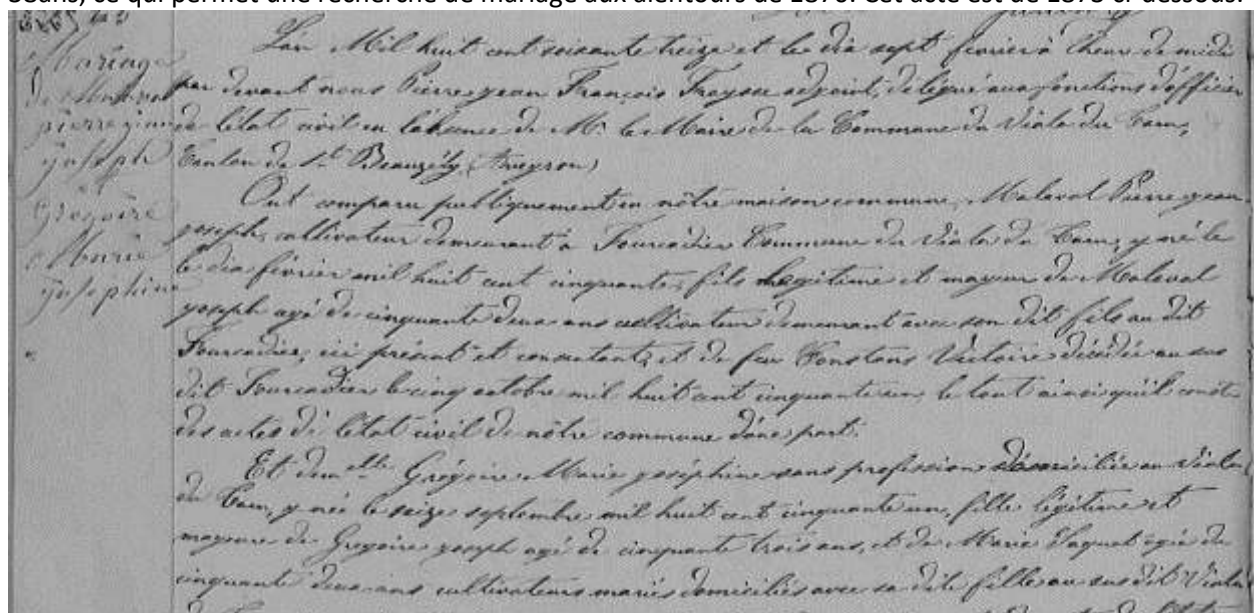 ce qui permet une recherche de mariage aux alentours de 1870. Cet acte est de 1873 ci-dessous.
Mariage
de Malaval
pierre jean
joseph
Grégoire
Marie
josephine
L'an Mil huit cent soixante treize et le dix sept fevrier à l'heure de midi
par devant nous Pierre jean François adjoint, délégué aux fonctions d'officier
de l'état civil en l'absence de Mr le Maire de la Commune du Viala du Tarn,
Canton de St Beauzély (Aveyron)
Ont comparu publiquement en nôtre maison commune, Malaval Pierre jean
joseph, cultivateur demeurant à Fourcadier Commune du Viala du Tarn, y né le
le dix février mil huit cent cinquante, fils légitime et majeur de Malaval
joseph agé de cinquante deux ans cultivateur demeurant avec son dit fils au dit
Fourcadier, ici présent et consentant, et de feu Constans Victoire décédée au sus
dit Fourcadier le cinq octobre mil huit cent cinquante un, le tout ainsi qu'il conste
des actes de l'état civil de nôtre commune d'une part.
Et dem.elle Grégoire Marie joséphine sans profession domiciliée au Viala
du Tarn, y née le seize septembre mil huit cent cinquante un, fille légitime et
majeure de Gregoire joseph agé de cinquante trois ans, et de Marie agée de
cinquante deux ans cultivateurs mariés domiciliés avec sa dite fille au sus dit Viala